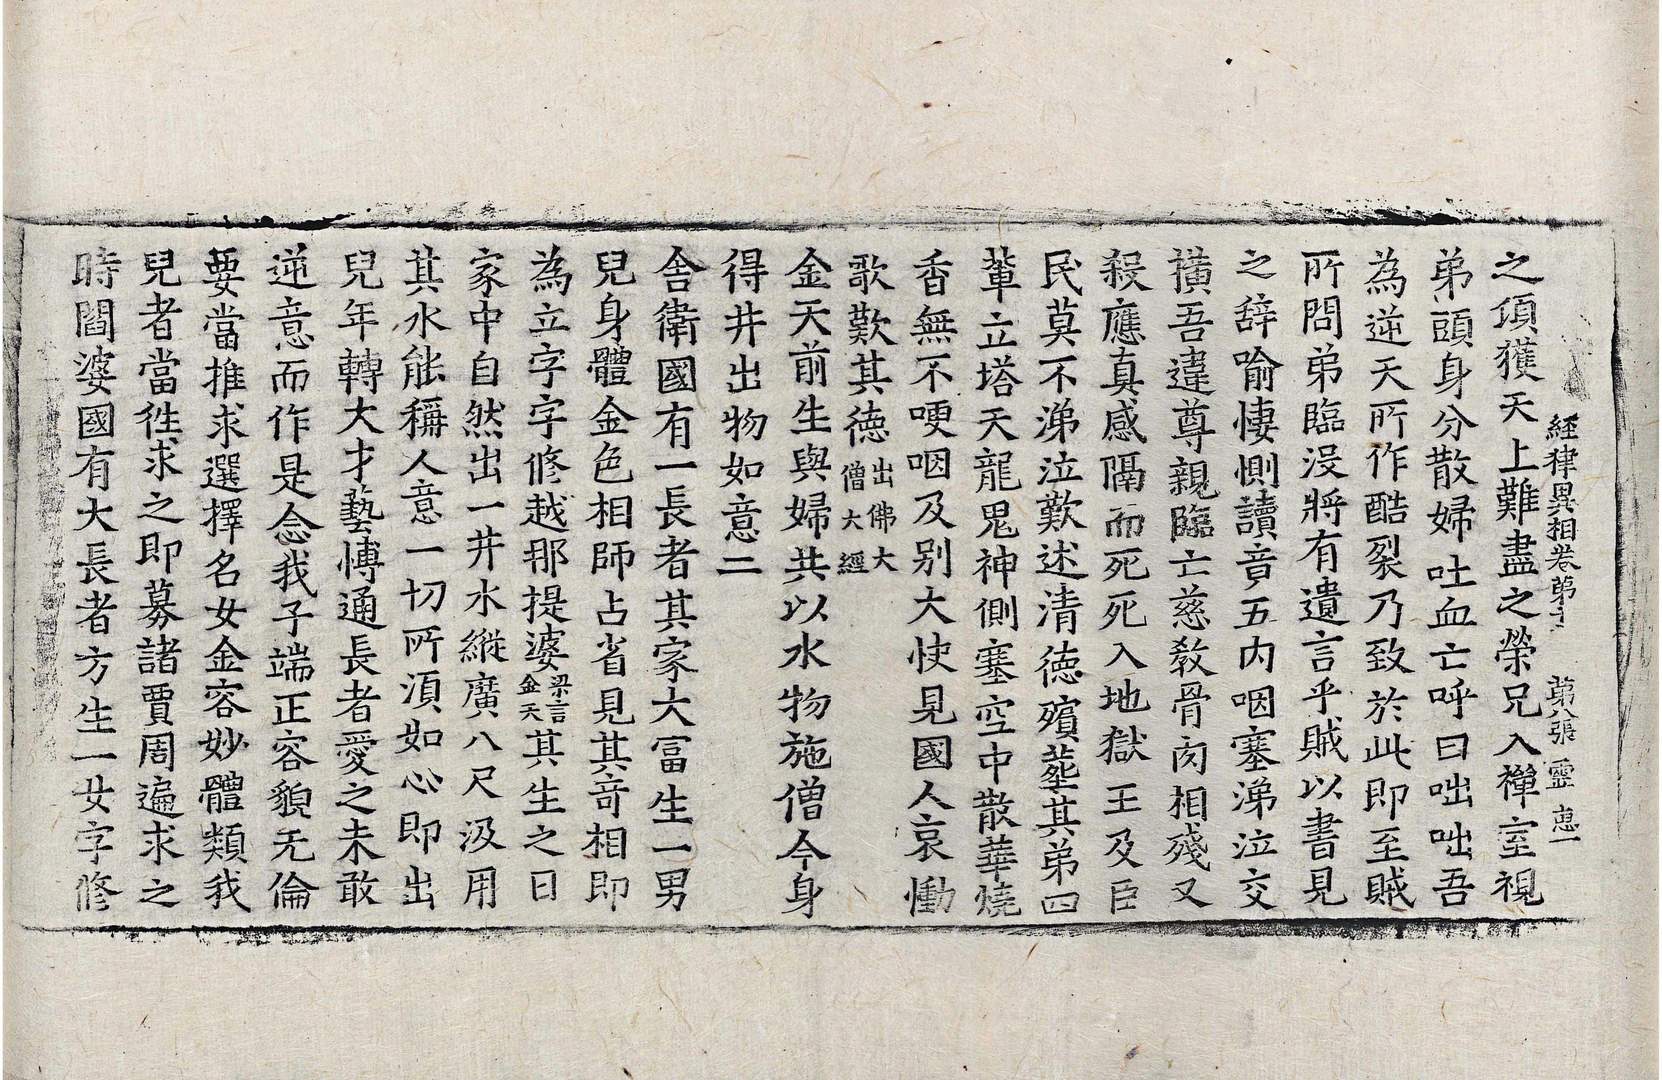 經律異相卷第十 第八張 靈 惠一
之頃獲天上難盡之榮兄入禪室視
弟頭身分散婦吐血亡呼曰咄咄吾
為逆天所作酷裂乃致於此即至賊
所問弟臨沒將有遺言乎賊以書見
之辞喻悽惻讀竟五内咽塞涕泣交
橫吾違尊親臨亡慈教骨肉相殘又
殺應真感隔而死死入地獄王及臣
民莫不涕泣歎述清德殯塟其弟四
輩立塔天龍鬼神側塞空中散華燒
香無不哽咽及别大使見國人哀慟
歌歎其德出佛大僧大經
金天前生與婦共以水物施僧今身
得井出物如意二
舍衛國有一長者其家大冨生一男
兒身體金色相師占省見其竒相即
為立字字修越那提婆梁言金天其生之日
家中自然出一井水縱廣八尺汲用
其水能稱人意一切所湏如心即出
兒年轉大才藝博通長者愛之未敢
逆意而作是念我子端正容貌无倫
要當推求選擇名女金容妙體類我
兒者當徃求之即募諸賈周遍求之
時閻婆國有大長者方生一女字修